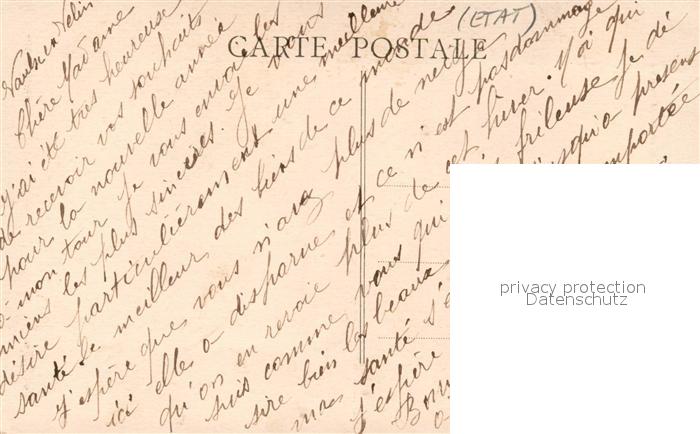 CARTE POSTALE
(ETAT)
Vaulx en Velin
Chère Madame
J'ai été très heureuse
de recevoir vos souhaits
pour la nouvelle année
à mon tour je vous envoie les
miens les plus sincères. Je vous
désire particulièrement une meilleure
santé le meilleur des biens de ce monde
J'espère que vous n'avez plus de neige
ici elle a disparue et ce n'est pas dommage
qu'on en revoie plus de cet hiver. J'ai qui
suis comme vous qui frileuse je dé
sire bien les beaux jusqu'a présent
ma santé s'e emportée
J'espère
privacy protection
Datenschutz